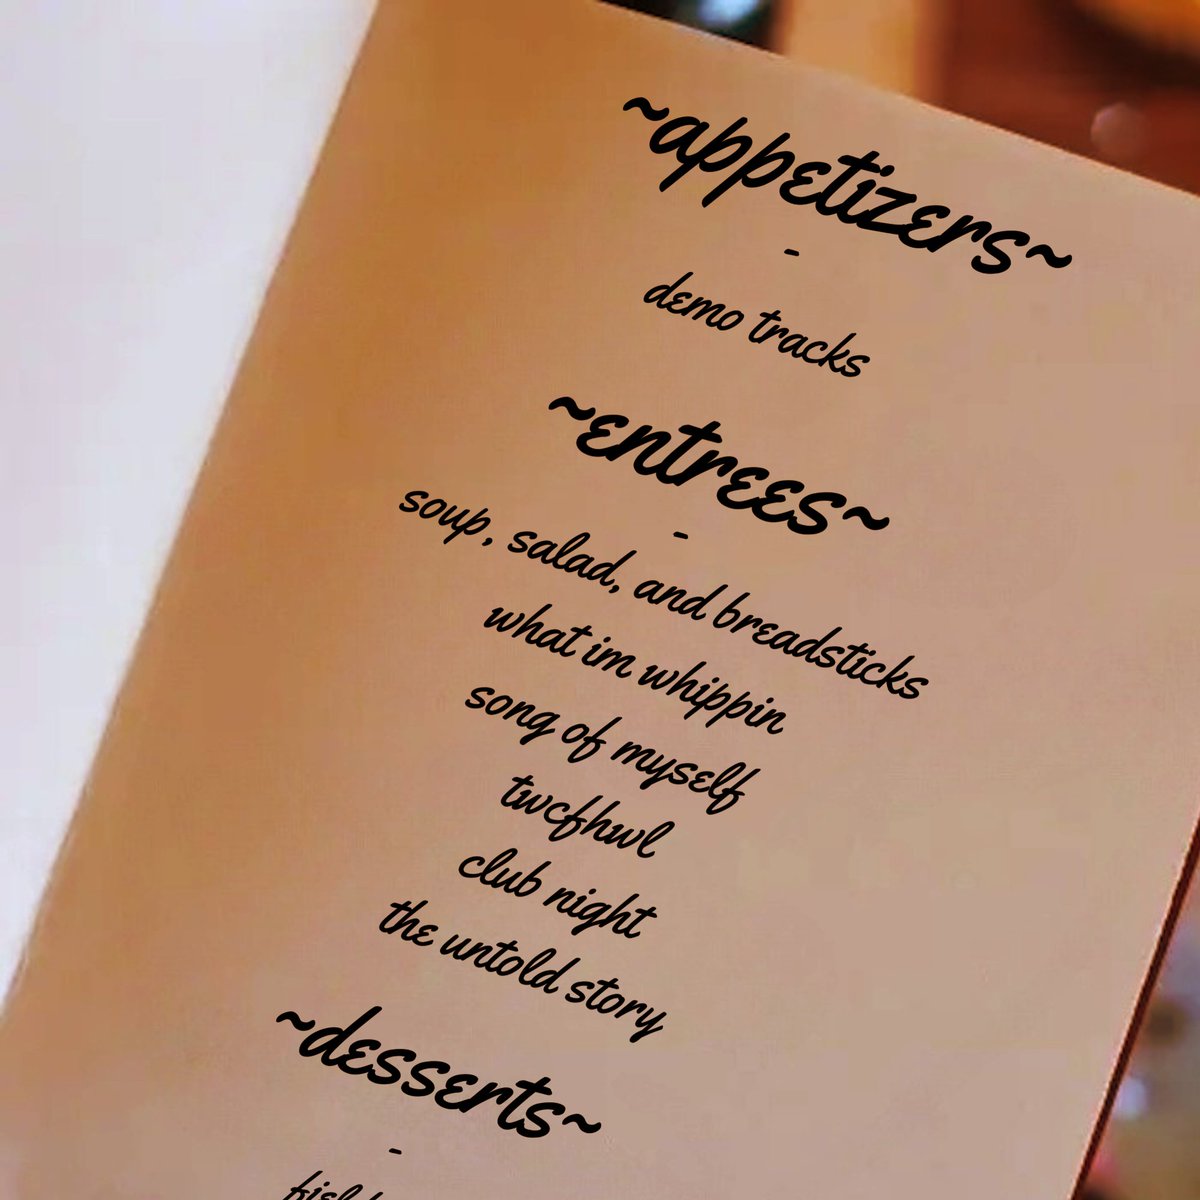 ~appetizers~
-
demo tracks
~entrees~
-
soup, salad, and breadsticks
what im whippin
song of myself
twcfhwl
club night
the untold story
~desserts~
-